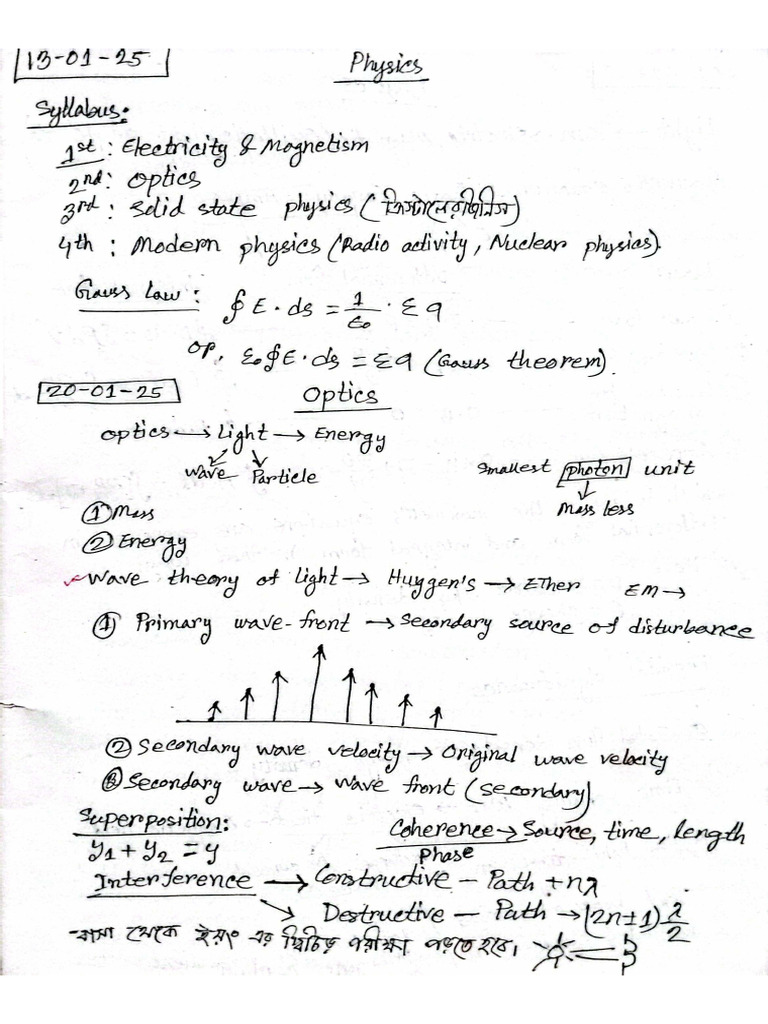 13-01-25
Physics
Syllabus:
1st : Electricity & Magnetism
2nd: Optics
3rd : Solid state physics (
4th : Modern physics (Radio activity, Nuclear physics).
Gauss Law : ∮E·ds = 1/ε₀ · Σq
or, ε₀∮E·ds = Σq (Gauss theorem).
20-01-25
Optics
Optics → Light → Energy
wave Particle
Smallest photon unit
Mass less
① Mass
② Energy
✓ Wave theory of light → Huygen's → Ether EM →
① Primary wave-front → Secondary source of disturbance
② Secondary wave velocity → Original wave velocity
③ Secondary wave → wave front (secondary)
Superposition:
y₁ + y₂ = y
Coherence → Source, time, length
Phase
Interference → Constructive – Path + nλ
→ Destructive – Path → (2n±1) λ/2
-বাসা থেকে ইয়ং এর দ্বিচিড় পরীক্ষা পড়তে হবে।